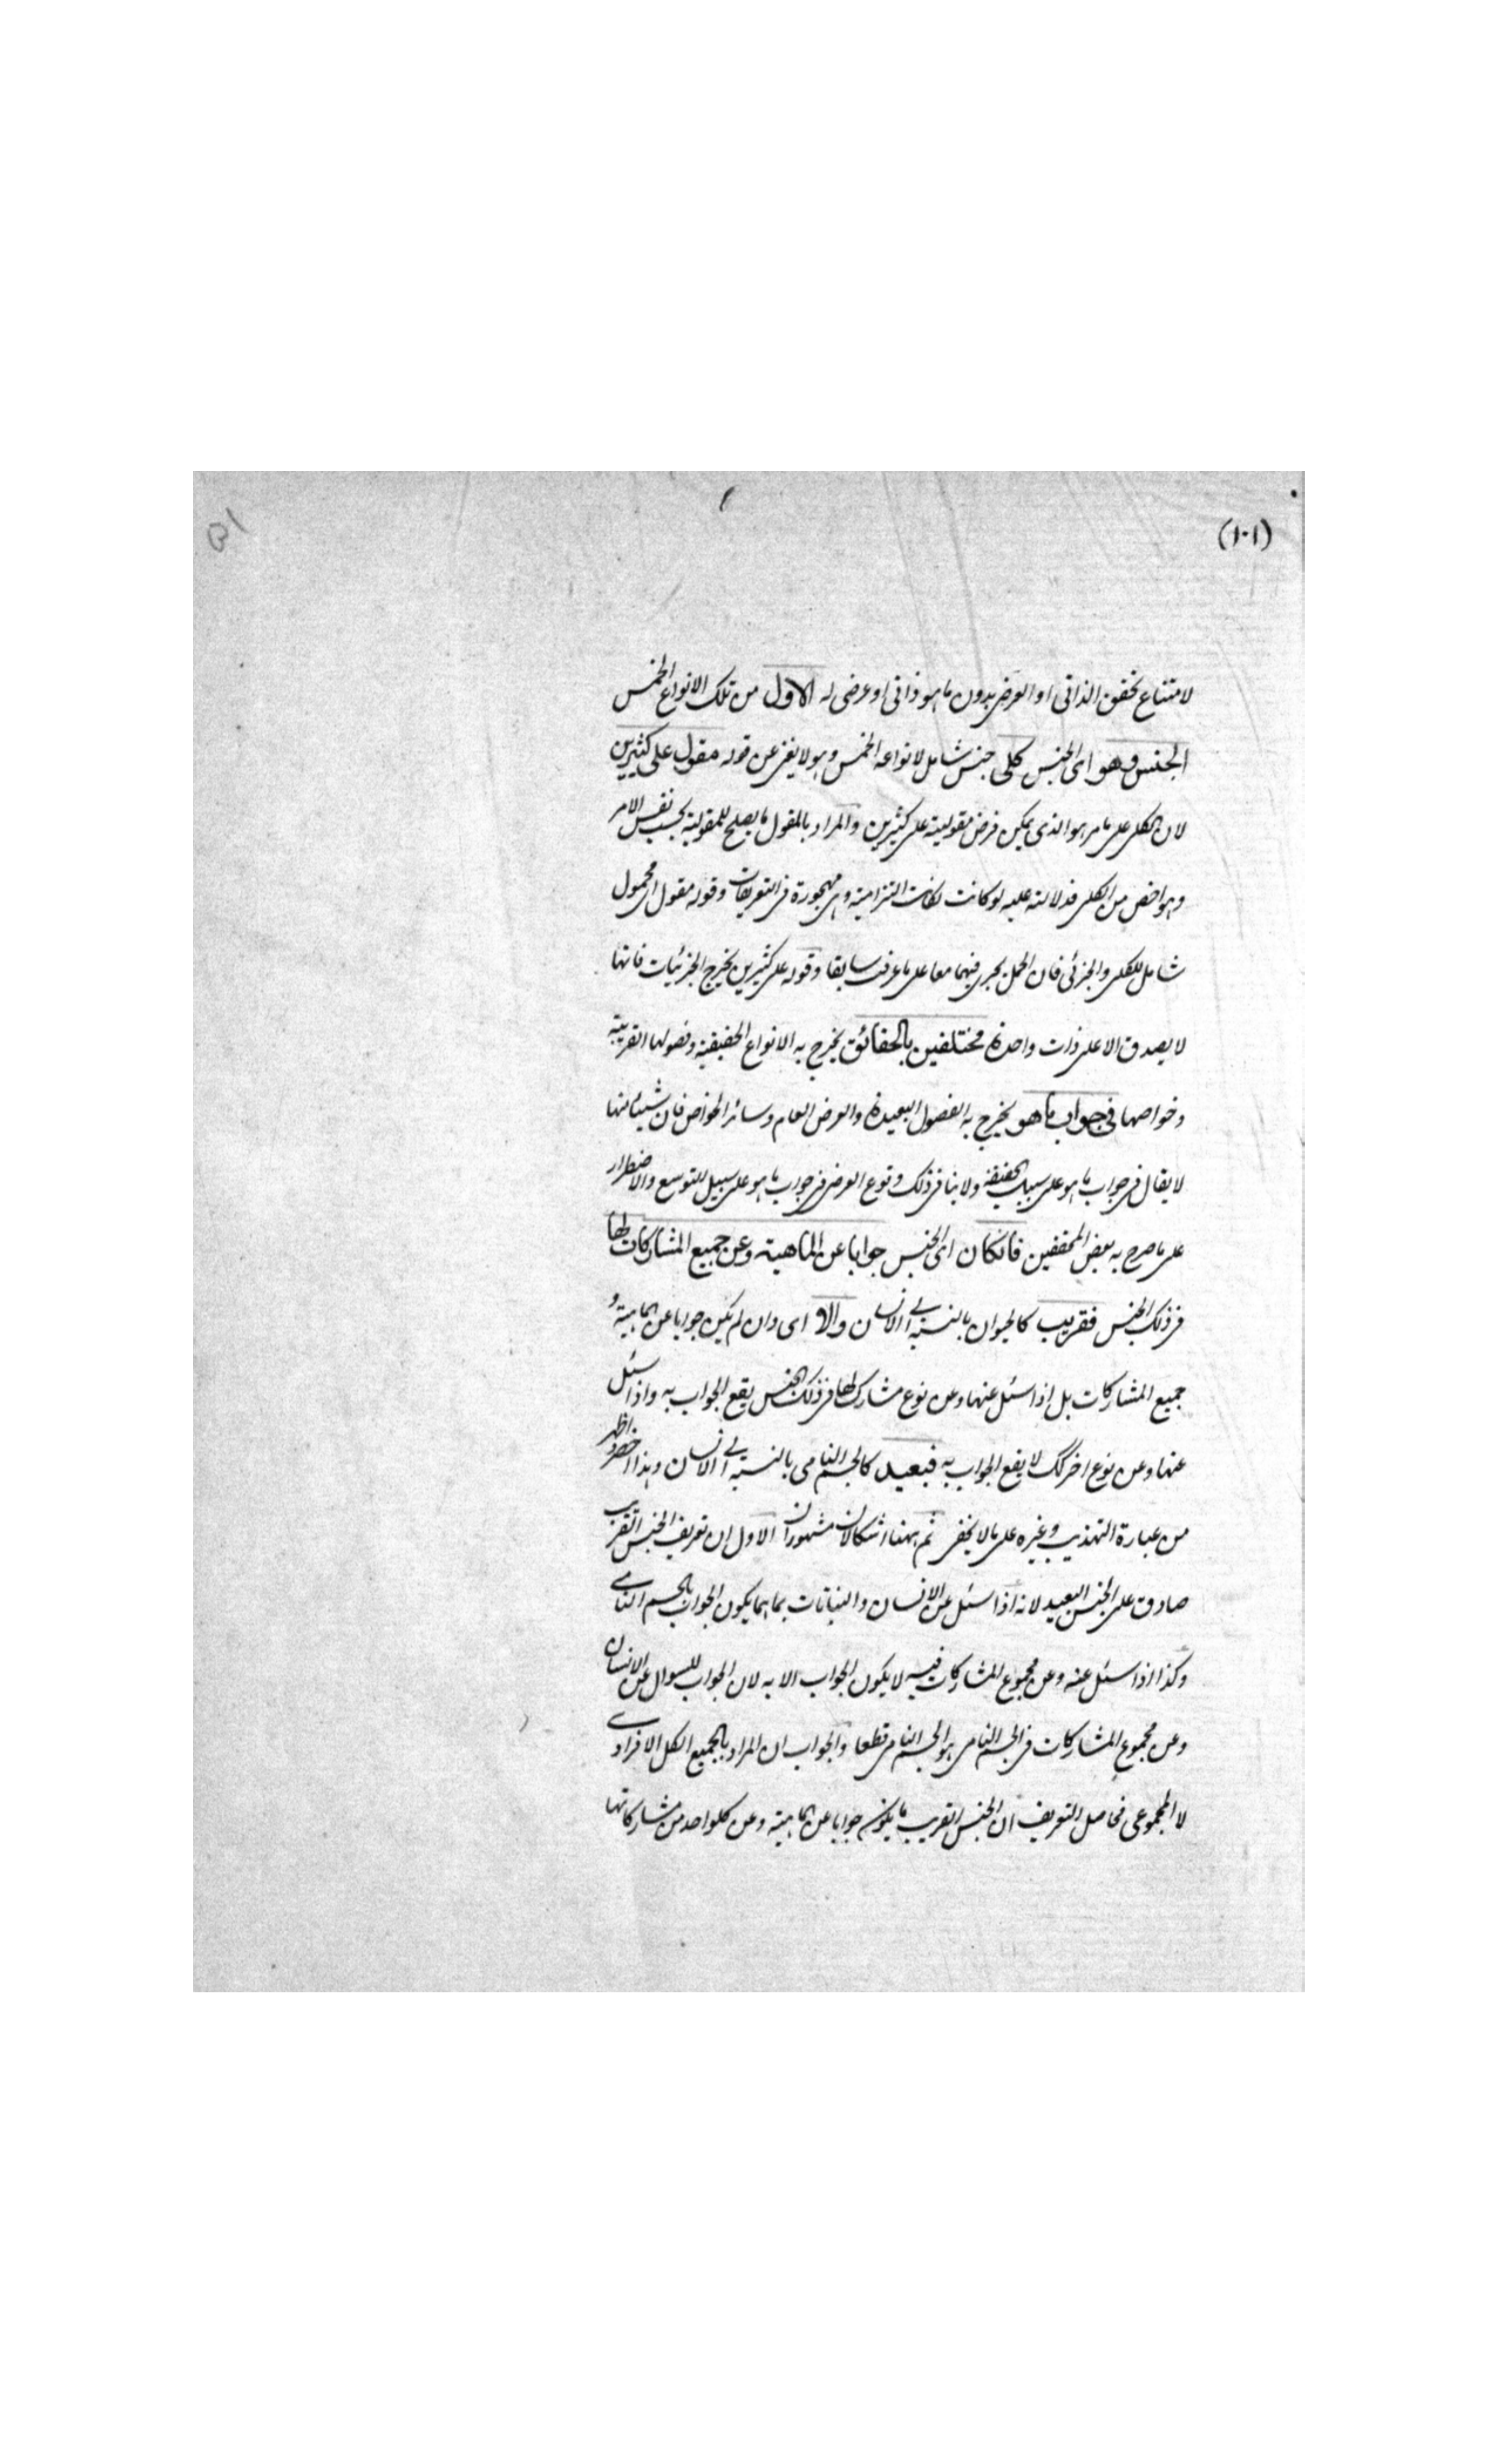 (١٠١)
٥١
لامتناع تحقق الذاتى او العرضى بدون ما هو ذاتى او عرضى له الاول من تلك الانواع الخمس
الجنس وهو اى الجنس كلى جنس شامل لانواعه الخمس وهو لا يغنى عن قوله مقول على كثيرين
لان الكلى على ما مر هو الذى يمكن فرض مقوليته على كثيرين والمراد بالمقول ما يصلح للمقولية بحسب نفس الامر
وهو اخص من الكلى فدلالته عليه لو كانت لكانت التزامية وهى مهجورة فى التعريفات وقوله مقول اى محمول
شامل للكلى والجزئى فان الحمل يجرى فيهما معا على ما عرفت سابقا وقوله على كثيرين يخرج الجزئيات فانها
لا يصدق الا على ذات واحدة مختلفين بالحقائق يخرج به الانواع الحقيقية وفصولها القريبة
وخواصها فى جواب ما هو يخرج به الفصول البعيدة والعرض العام وسائر الخواص فان شيئا منها
لا يقال فى جواب ما هو على سبيل الحقيقة ولا ينافى ذلك وقوع العرض فى جواب ما هو على سبيل التوسع والاضطرار
على ما صرح به بعض المحققين فان كان اى الجنس جوابا عن الماهية وعن جميع المشاركات لها
فى ذلك الجنس فقريب كالحيوان بالنسبة الى الانسان والا اى وان لم يكن جوابا عن الماهية و
جميع المشاركات بل اذا سئل عنها وعن نوع مشارك لها فى ذلك الجنس يقع الجواب به واذا سئل
عنها وعن نوع اخر لا يقع الجواب به فبعيد كالجسم النامى بالنسبة الى الانسان وهذا اخصر و اظهر
من عبارة التهذيب وغيره على ما لا يخفى ثم ههنا اشكالان مشهوران الاول ان تعريف الجنس القريب
صادق على الجنس البعيد لانه اذا سئل عن الانسان والنباتات بما هما يكون الجواب بالجسم النامى
وكذا اذا سئل عنه وعن مجموع المشاركات فيه لا يكون الجواب الا به لان الجواب للسوال عن الانسان
وعن مجموع المشاركات فى الجسم النامى هو الجسم النامى قطعا والجواب ان المراد بالجميع الكل الافرادى
لا المجموعى فحاصل التعريف ان الجنس القريب ما يكون جوابا عن الماهية وعن كلواحد من مشاركاتها